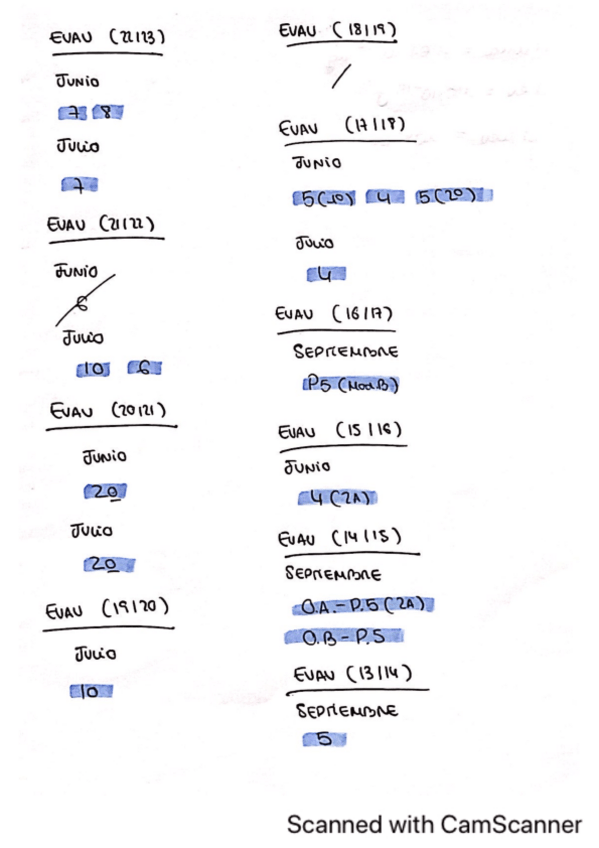 EVAU (22/23)
JUNIO
7 8
JULIO
7
EVAU (21/22)
JUNIO
6
JULIO
10 6
EVAU (20/21)
JUNIO
20
JULIO
20
EVAU (19/20)
JULIO
10
EVAU (18/19)
/
EVAU (17/18)
JUNIO
5(10) 4 5(20)
JULIO
4
EVAU (16/17)
SEPTIEMBRE
P5 (Mod.B)
EVAU (15/16)
JUNIO
4 (2A)
EVAU (14/15)
SEPTIEMBRE
O.A.- P.5 (2A)
O.B - P.5
EVAU (13/14)
SEPTIEMBRE
5
Scanned with CamScanner